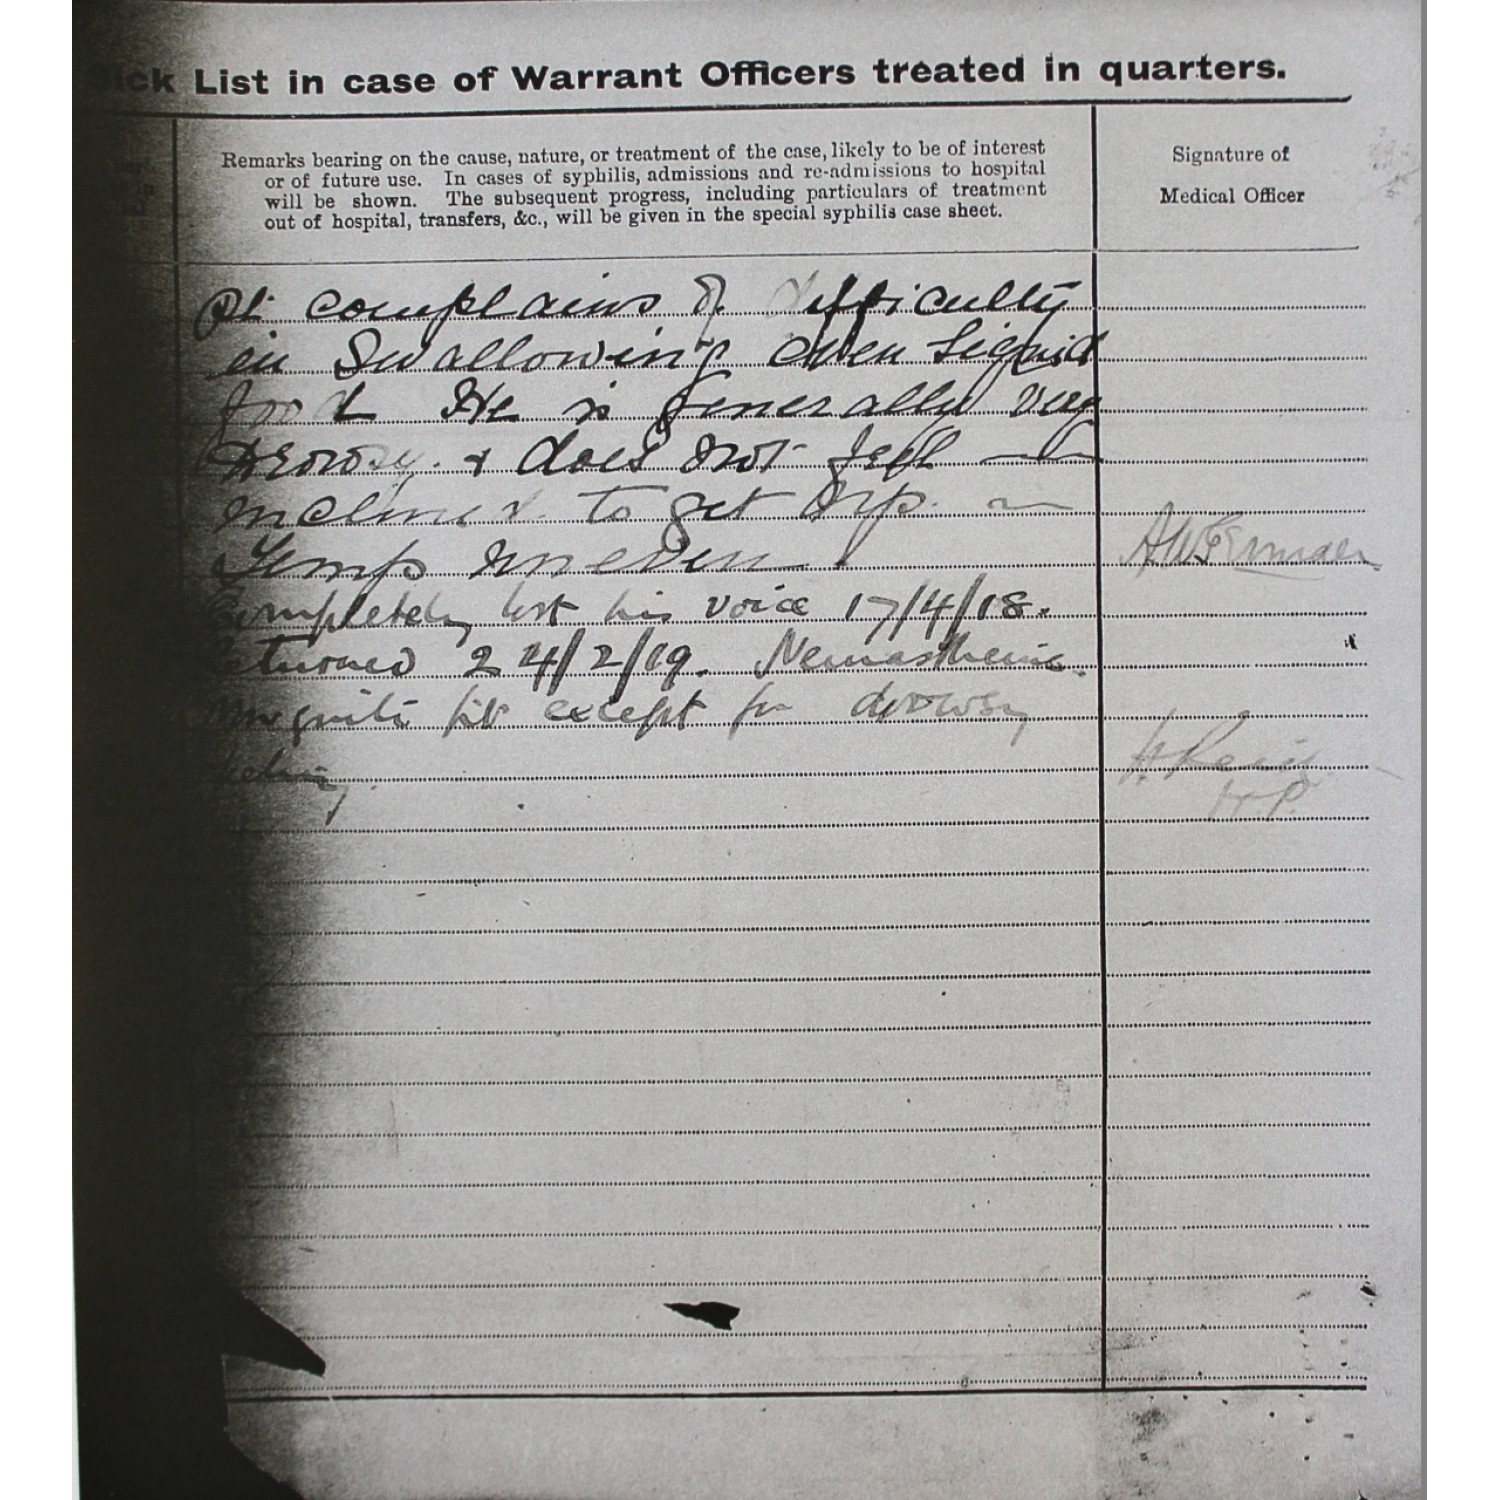 Sick List in case of Warrant Officers treated in quarters.
Remarks bearing on the cause, nature, or treatment of the case, likely to be of interest
or of future use. In cases of syphilis, admissions and re-admissions to hospital
will be shown. The subsequent progress, including particulars of treatment
out of hospital, transfers, &c., will be given in the special syphilis case sheet.
Signature of
Medical Officer
Pt. complains of difficulty
in Swallowing even liquid
food He is generally very
drowsy. & does not feel
inclined to get up.
Temp uneven
Completely lost his voice 17/4/18.
Returned 24/2/19. Neurasthenia
quite fit except for drowsy
feeling.